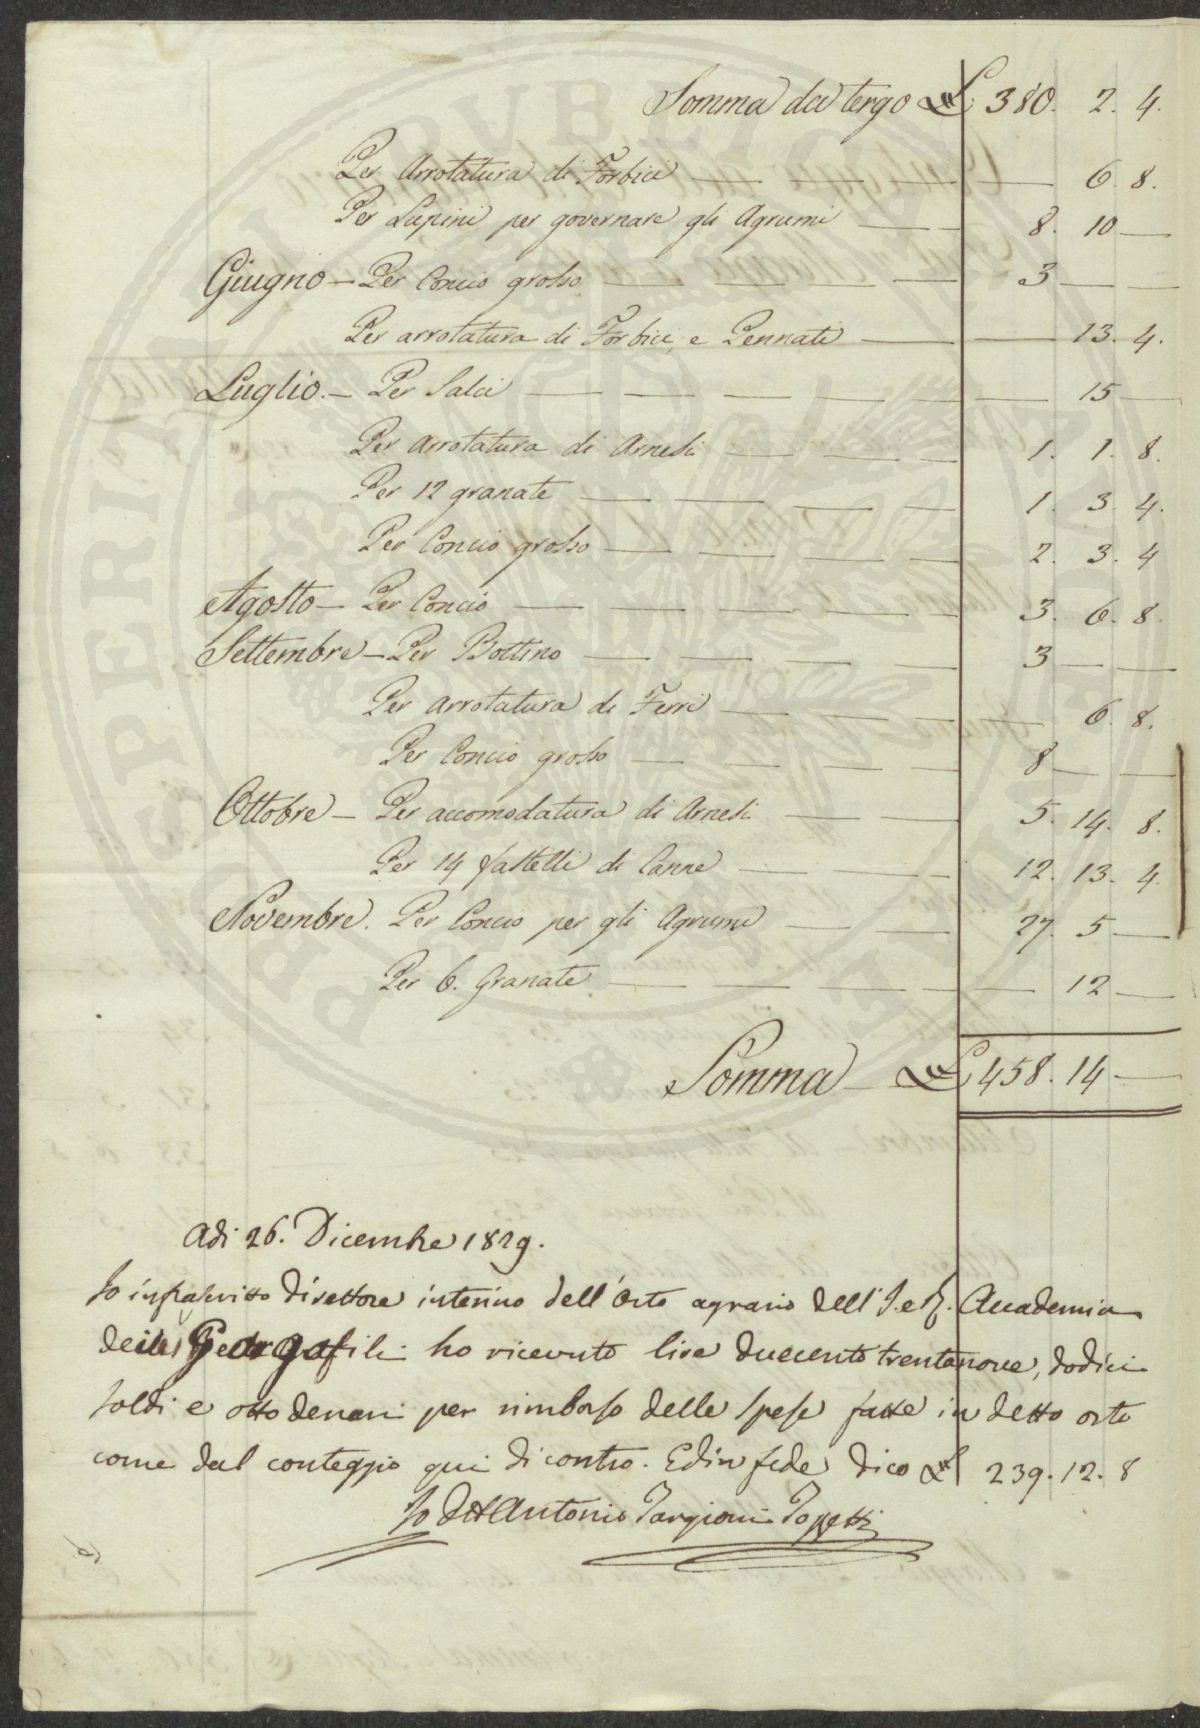 Somma da tergo £ 380. 2. 4.
Per Arrotatura di Forbici — — 6. 8.
Per Lupini per governare gli Agrumi — 8. 10 —
Giugno — Per Concio grosso — 3 — —
Per arrotatura di Forbici, e Pennati — — 13. 4.
Luglio. — Per Salci — — 15 —
Per Arrotatura di Arnesi — 1. 1. 8.
Per 12 granate — 1. 3. 4.
Per Concio grosso — 2. 3. 4
Agosto — Per Concio — 3. 6. 8.
Settembre — Per Bottino — 3 — —
Per Arrotatura di Ferri — — 6. 8.
Per Concio grosso — 8 — —
Ottobre — Per accomodatura di Arnesi — 5. 14. 8.
Per 14 fastelli di Canne — 12. 13. 4.
Novembre. Per Concio per gli Agrumi — 27. 5 —
Per 6. Granate — — 12 —
Somma — £ 458. 14 —
Adi 26. Dicembre 1829.
Io infrascritto Direttore interino dell'Orto agrario dell'I. e R. Accademia
dei Georgofili ho ricevuto lire duecento trentanove, dodici
soldi e otto denari per rimborso delle spese fatte in detto orto
come dal conteggio qui di contro. Ed in fede dico £ 239. 12. 8
Io Dtt Antonio Targioni Tozzetti
PROSPERITATI PUBLICAE AUGENDAE